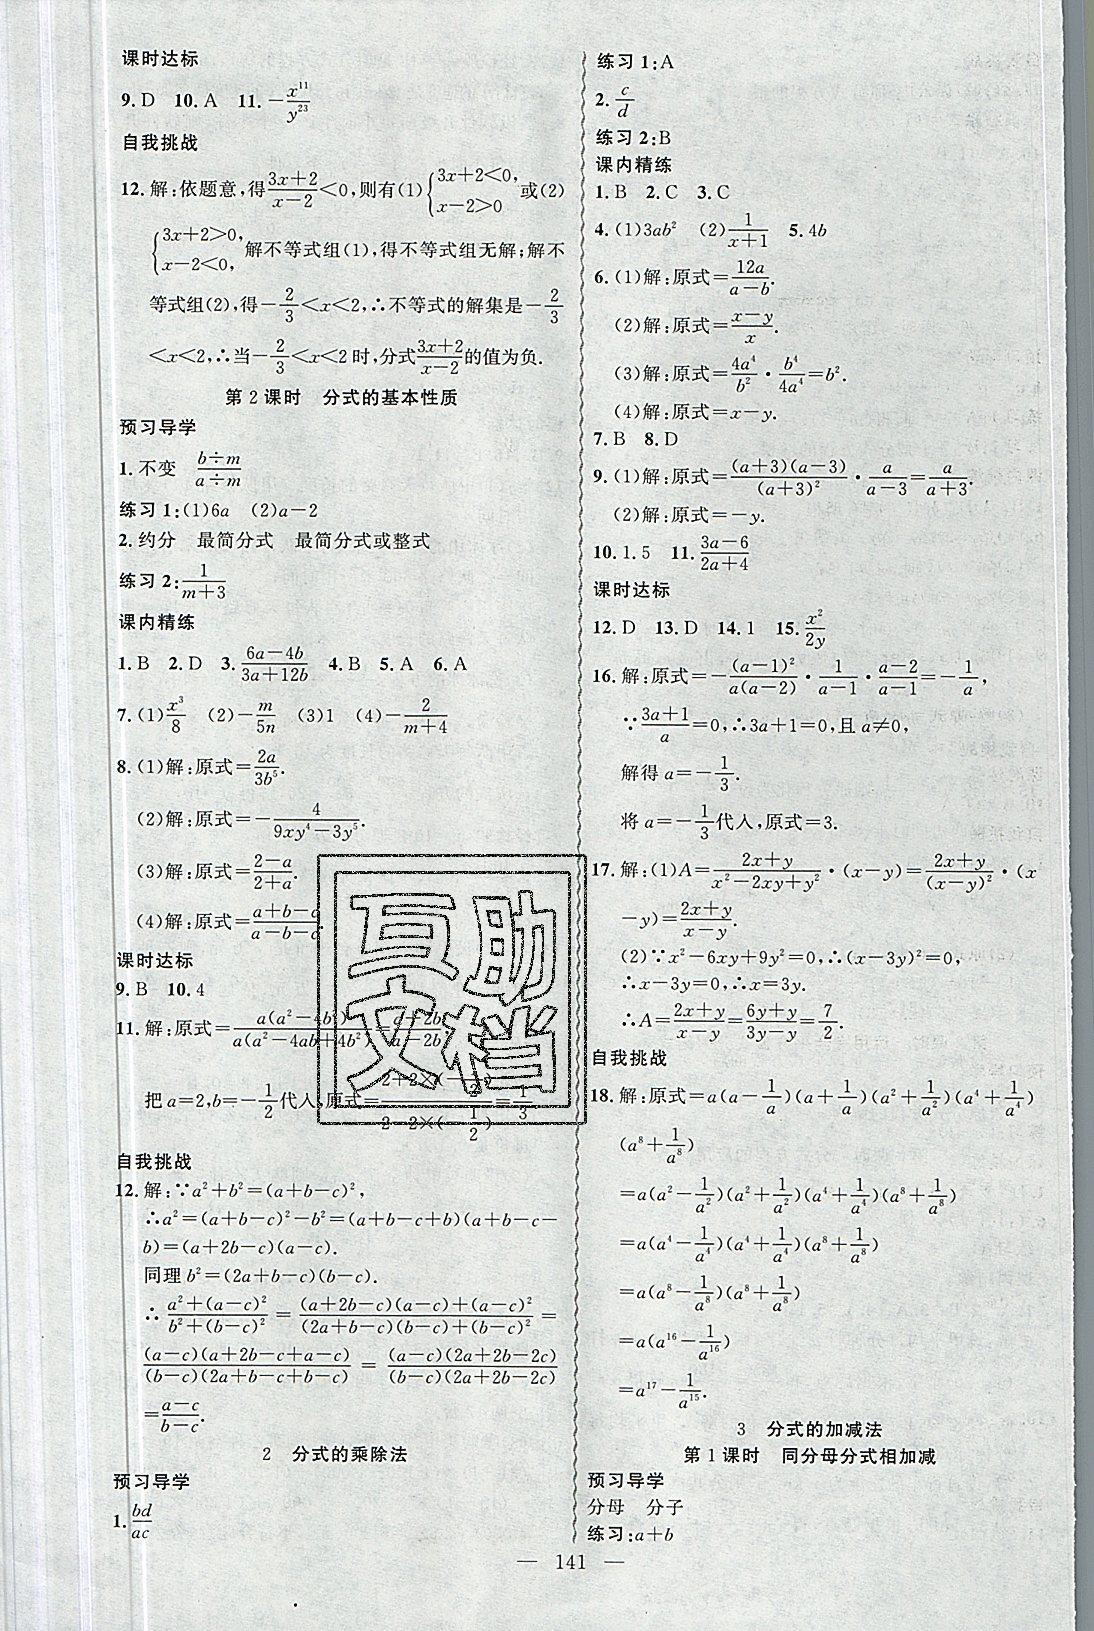 课时达标
9. D 10. A 11. −x¹¹/y²³
自我挑战
12. 解:依题意,得(3x+2)/(x−2)<0,则有(1){3x+2<0, x−2>0 或(2)
{3x+2>0, x−2<0, 解不等式组(1),得不等式组无解;解不
等式组(2),得−2/3<x<2,∴不等式的解集是−2/3
<x<2,∴当−2/3<x<2时,分式(3x+2)/(x−2)的值为负.
第2课时 分式的基本性质
预习导学
1. 不变 (b÷m)/(a÷m)
练习1:(1)6a (2)a−2
2. 约分 最简分式 最简分式或整式
练习2:1/(m+3)
课内精练
1. B 2. D 3. (6a−4b)/(3a+12b) 4. B 5. A 6. A
7. (1)x³/8 (2)−m/5n (3)1 (4)−2/(m+4)
8. (1)解:原式=2a/3b⁵.
(2)解:原式=−4/(9xy⁴−3y⁵).
(3)解:原式=(2−a)/(2+a).
(4)解:原式=(a+b−c)/(a−b−c).
课时达标
9. B 10. 4
11. 解:原式=a(a²−4b²)/a(a²−4ab+4b²)=(a+2b)/(a−2b),
把a=2,b=−1/2代入,原式=(2+2×(−1/2))/(2−2×(−1/2))=1/3
自我挑战
12. 解:∵a²+b²=(a+b−c)²,
∴a²=(a+b−c)²−b²=(a+b−c+b)(a+b−c−
b)=(a+2b−c)(a−c).
同理b²=(2a+b−c)(b−c).
∴(a²+(a−c)²)/(b²+(b−c)²)=((a+2b−c)(a−c)+(a−c)²)/((2a+b−c)(b−c)+(b−c)²)=
(a−c)(a+2b−c+a−c)/(b−c)(2a+b−c+b−c)=(a−c)(2a+2b−2c)/(b−c)(2a+2b−2c)
=(a−c)/(b−c).
2 分式的乘除法
预习导学
1. bd/ac
练习1:A
2. c/d
练习2:B
课内精练
1. B 2. C 3. C
4. (1)3ab² (2)1/(x+1) 5. 4b
6. (1)解:原式=12a/(a−b).
(2)解:原式=(x−y)/x.
(3)解:原式=4a⁴/b²·b⁴/4a⁴=b².
(4)解:原式=x−y.
7. B 8. D
9. (1)解:原式=(a+3)(a−3)/(a+3)²·a/(a−3)=a/(a+3).
(2)解:原式=−y.
10. 1.5 11. (3a−6)/(2a+4)
课时达标
12. D 13. D 14. 1 15. x²/2y
16. 解:原式=−(a−1)²/a(a−2)·1/(a−1)·(a−2)/(a−1)=−1/a,
∵(3a+1)/a=0,∴3a+1=0,且a≠0,
解得a=−1/3.
将a=−1/3代入,原式=3.
17. 解:(1)A=(2x+y)/(x²−2xy+y²)·(x−y)=(2x+y)/(x−y)²·(x
−y)=(2x+y)/(x−y).
(2)∵x²−6xy+9y²=0,∴(x−3y)²=0,
∴x−3y=0,∴x=3y.
∴A=(2x+y)/(x−y)=(6y+y)/(3y−y)=7/2.
自我挑战
18. 解:原式=a(a−1/a)(a+1/a)(a²+1/a²)(a⁴+1/a⁴)
(a⁸+1/a⁸)
=a(a²−1/a²)(a²+1/a²)(a⁴+1/a⁴)(a⁸+1/a⁸)
=a(a⁴−1/a⁴)(a⁴+1/a⁴)(a⁸+1/a⁸)
=a(a⁸−1/a⁸)(a⁸+1/a⁸)
=a(a¹⁶−1/a¹⁶)
=a¹⁷−1/a¹⁵.
3 分式的加减法
第1课时 同分母分式相加减
预习导学
分母 分子
练习:a+b
— 141 —
互助
文档